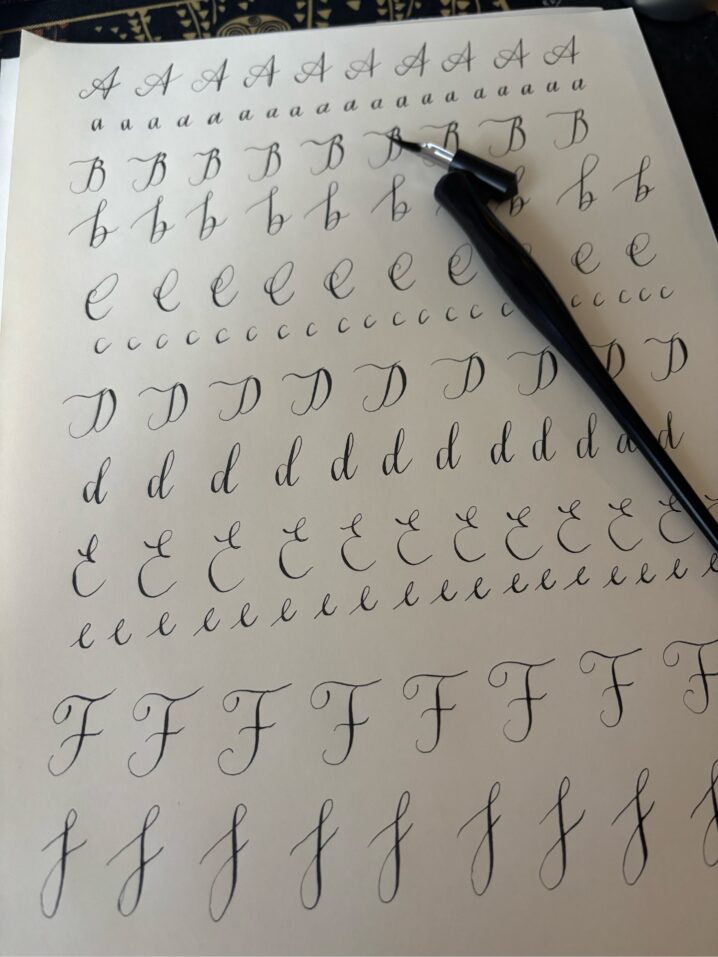 A A A A A A A A A A
a a a a a a a a a a a a a a a a a a a
B B B B B B B B B
b b b b b b b b b
C C C C C C C C C
c c c c c c c c c c c c c c c c c c c c
D D D D D D D D D
d d d d d d d d d d d d
E E E E E E E E E E E E
e e e e e e e e e e e e e e e e e e
F F F F F F F F
f f f f f f f f f